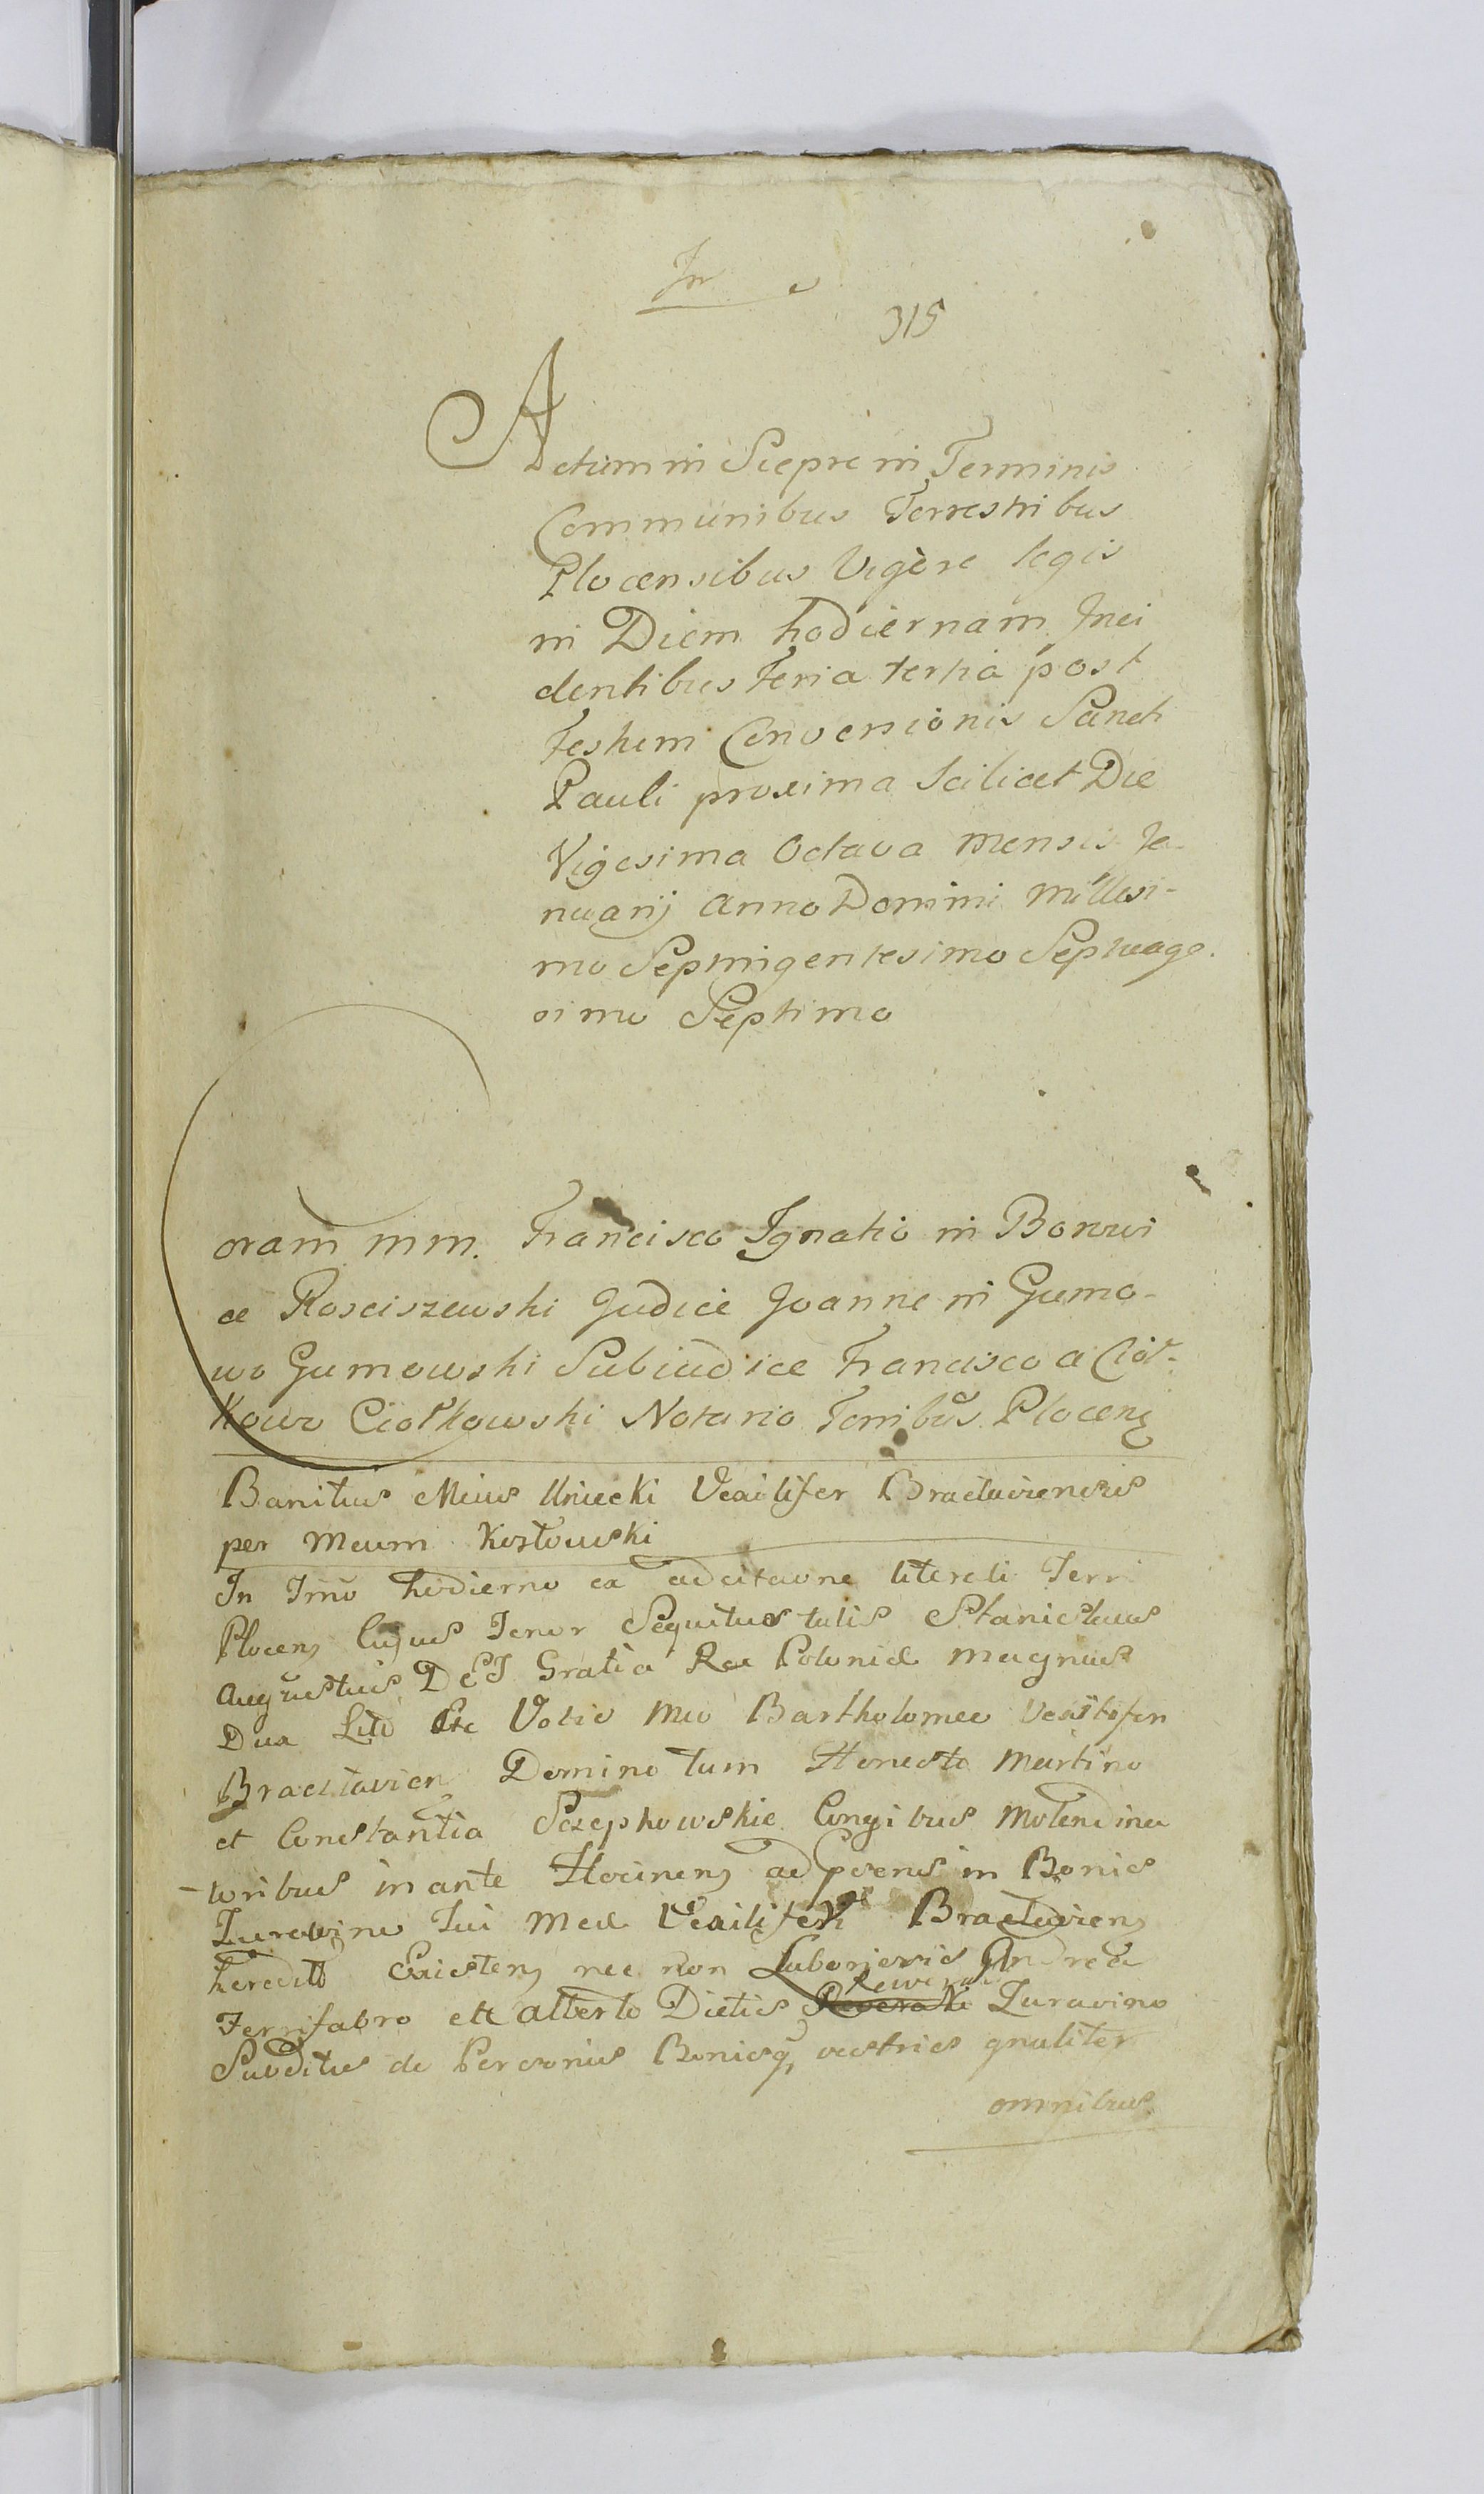 In
315
Actum in Siepre in Terminis
Communibus Terrestribus
Plocensibus Vigore legis
in Diem hodiernam Inci
dentibus Feria tertia post
Festum Conversionis Sancti
Pauli proxima Scilicet Die
Vigesima Octava Mensis Ja-
nuarij Anno Domini Millesi-
mo Septingentesimo Septuage.
simo Septimo
Coram mm. Francisco Ignatio in Borzwi
ce Rosciszewski Judice Joanne in Gumo-
wo Gumowski Subiudice Francisco a Cioł-
kowo Ciołkowski Notario Terribus Plocens
Banitus Mius Uniecki Vexilifer Braclaviensis
per Meum Kozłowski
In Trno hodierno ex adcitaone literali Terri
Plocens Cujus Tenor Sequitur talis Stanislaus
Augustus DEI Gratia Rex Poloniæ Magnus
Dux Litt Etc Vobis Mco Bartholomeo Vexilifero
Braclavien Domino tum Honesto Martino
et Constantia Szepkowskie Congibus Molendina
-toribus in ante Hocinens ad Ipsens in Bonis
Zurawino Tui Mei Vexiliferi Braclaviens
heredit Existens nec non Laboriosis Andrea
Ferrifabro et Alberto Dictis Zuravino
Subditis de Personis Bonisq vestris gnaliter
omnibus